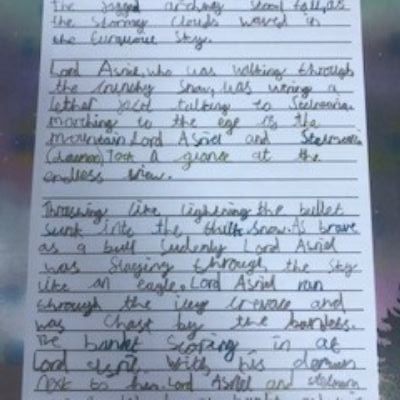 the jagged archway stood tall, as
the stormy clouds waved in
the turquoise sky.
Lord Asriel, who was walking through
the crunchy snow, was wering a
lether jacet talking to Stelmaria.
marching to the ege of the
mountain Lord Asriel and
(daemon) Took A glance at the
endless view.
Thrashing like lightning the bullet
sunk into the thick snow. As brave
as a bull Sudenly Lord Asriel
was Staging through the sky
like an eagle. Lord Asriel ran
through the icey crevase and
was chase by the
The bullet scoring in at
Lord Asriel. With his demon
next to him. Lord Asriel and